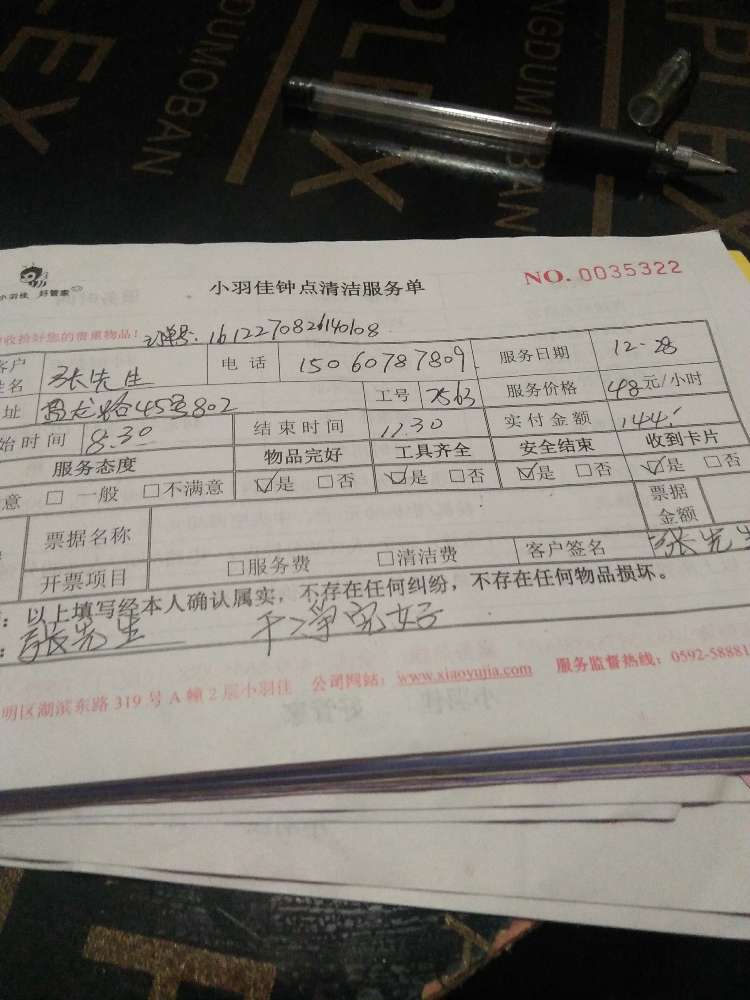 DUMOBAN
EX
PLEX
NGDUMOBAN
PLEX
小羽佳 好管家
小羽佳钟点清洁服务单
NO. 0035322
收拾好您的贵重物品!
订单号: 1612270826140108
客户姓名 张先生 电 话 15060787809 服务日期 12-28
址 45号802 工号 7563 服务价格 48元/小时
始时间 8:30 结束时间 11.30 实付金额 144.
服务态度 物品完好 工具齐全 安全结束 收到卡片
意 □ 一般 □不满意 ☑是 □否 ☑是 □否 ☑是 □否 ☑是 □否
票据名称 票据金额
开票项目 □服务费 □清洁费 客户签名 张先生
: 以上填写经本人确认属实，不存在任何纠纷，不存在任何物品损坏。
: 张先生 干净完好
明区湖滨东路 319 号 A 幢 2 层小羽佳 公司网站: www.xiaoyujia.com 服务监督热线: 0592-58881